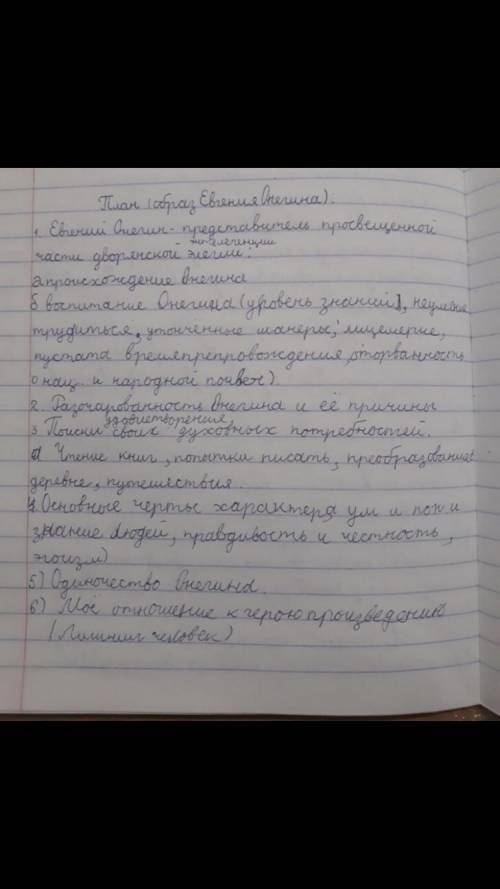 План (образ Евгения Онегина):
1. Евгений Онегин - представитель просвещенной
интелегенции
части дворянской элегии:
а происхождение Онегина
б воспитание Онегина (уровень знаний), неумение
трудиться, утонченные манеры, лицемерие,
пустата времяпрепровождения, оторванность
о нац. и народной почвен).
2. Разочарованность Онегина и её причины
удовлетворения
3. Поиски своих духовных потребностей.
а Чтение книг, попытки писать, преобразования
деревне, путешествия.
4. Основные черты характера ум и пон и
знание людей, правдивость и честность,
эгоизм)
5) Одиночество Онегина.
6) Моё отношение к герою произведению
(Лишний человек)